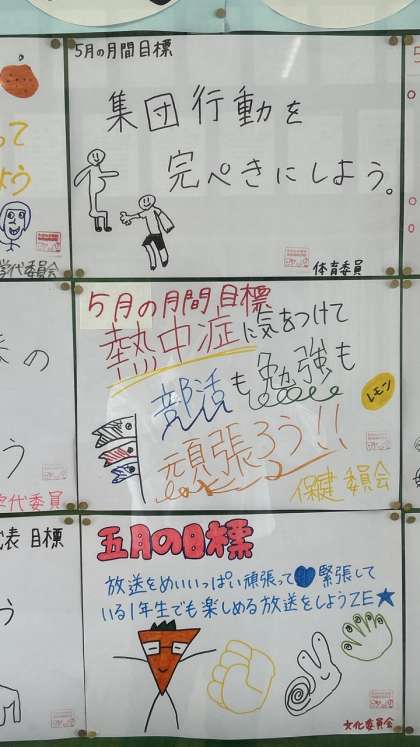 5月の月間目標
集団行動を
完ぺきにしよう。
体育委員
って
よう
学代委員会
5月の月間目標
熱中症に気をつけて
部活も勉強も
レモン
頑張ろう!!
保健委員会
の
う
学代委員
表 目標
う
五月の目標
放送をめいいっぱい頑張って 緊張して
いる1年生でも楽しめる放送をしようZE★
文化委員会